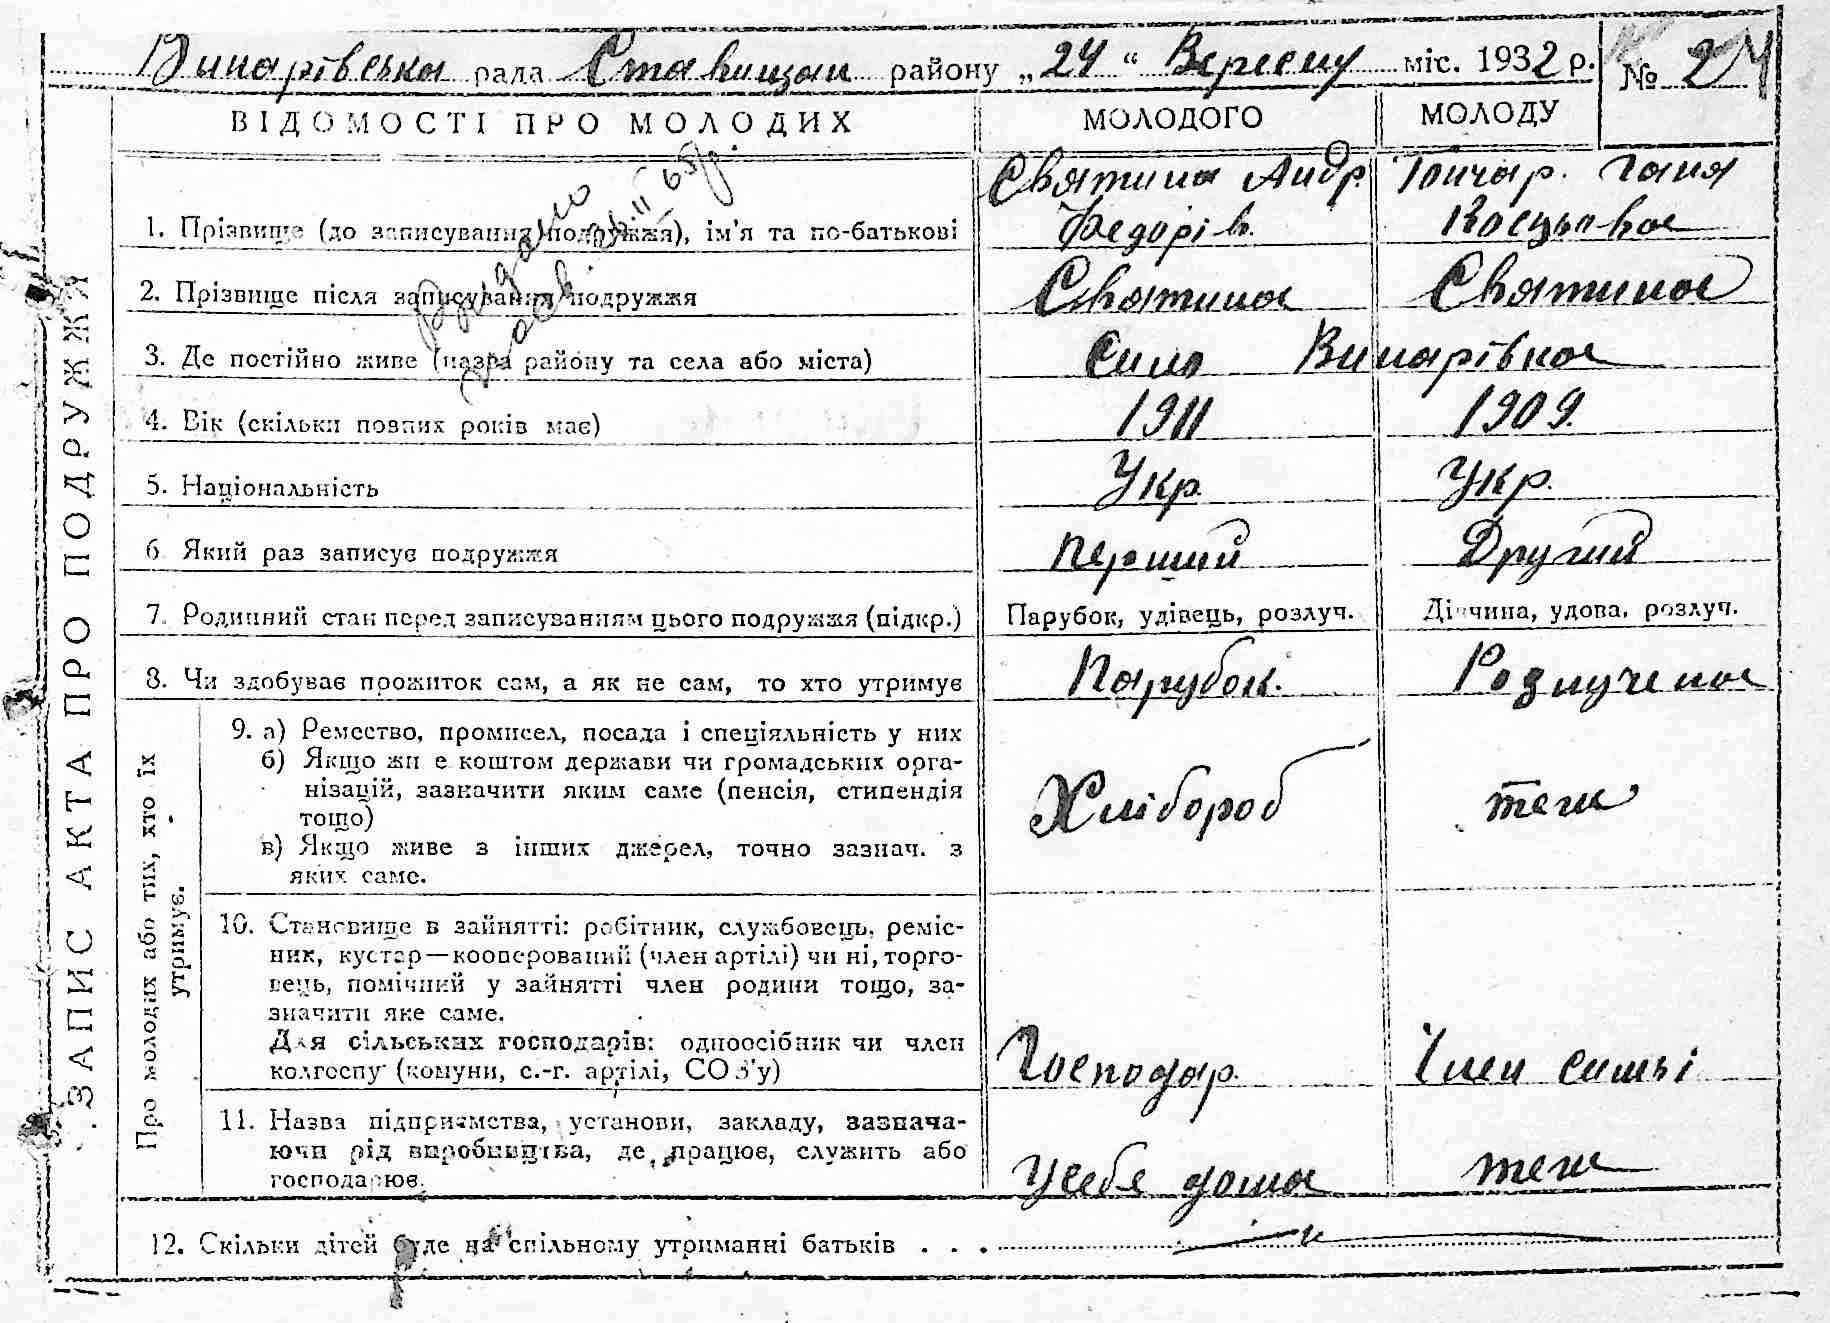 Винарівська рада Ставищан району „24“ Вересня міс. 1932 р. № 24
ВІДОМОСТІ ПРО МОЛОДИХ МОЛОДОГО МОЛОДУ
ЗАПИС АКТА ПРО ПОДРУЖЖЯ
Святина Андр. Гончар. Ганя
1. Прізвище (до записування подружжя), ім'я та по-батькові Федорів. 
2. Прізвище після записування подружжя Святина Святина
Видано
3. Де постійно живе (назва району та села або міста) Село Винарівка
4. Вік (скільки повних років має) 1911 1909.
5. Національність Укр. Укр.
6. Який раз записує подружжя Перший Другий
7. Родинний стан перед записуванням цього подружжя (підкр.) Парубок, удівець, розлуч. Дівчина, удова, розлуч.
8. Чи здобуває прожиток сам, а як не сам, то хто утримує Парубок. Розлучена
Про молодих або тих, хто їх
утримує.
9. а) Ремество, промисел, посада і спеціяльність у них
б) Якщо живе коштом держави чи громадських орга-
нізацій, зазначити яким саме (пенсія, стипендія Хлібороб теж
тощо)
в) Якщо живе з інших джерел, точно зазнач. з
яких саме.
10. Становище в зайнятті: робітник, службовець, реміс-
ник, кустар—кооперований (член артілі) чи ні, торго-
вець, помічний у зайнятті член родини тощо, за-
значити яке саме.
Для сільських господарів: одноосібник чи член
колгоспу (комуни, с.-г. артілі, СОЗ'у) Господар. Член симьі
11. Назва підприємства, установи, закладу, зазнача-
ючи рід виробництва, де працює, служить або
господарює. Усебе дома теж
12. Скільки дітей буде на спільному утриманні батьків . . .